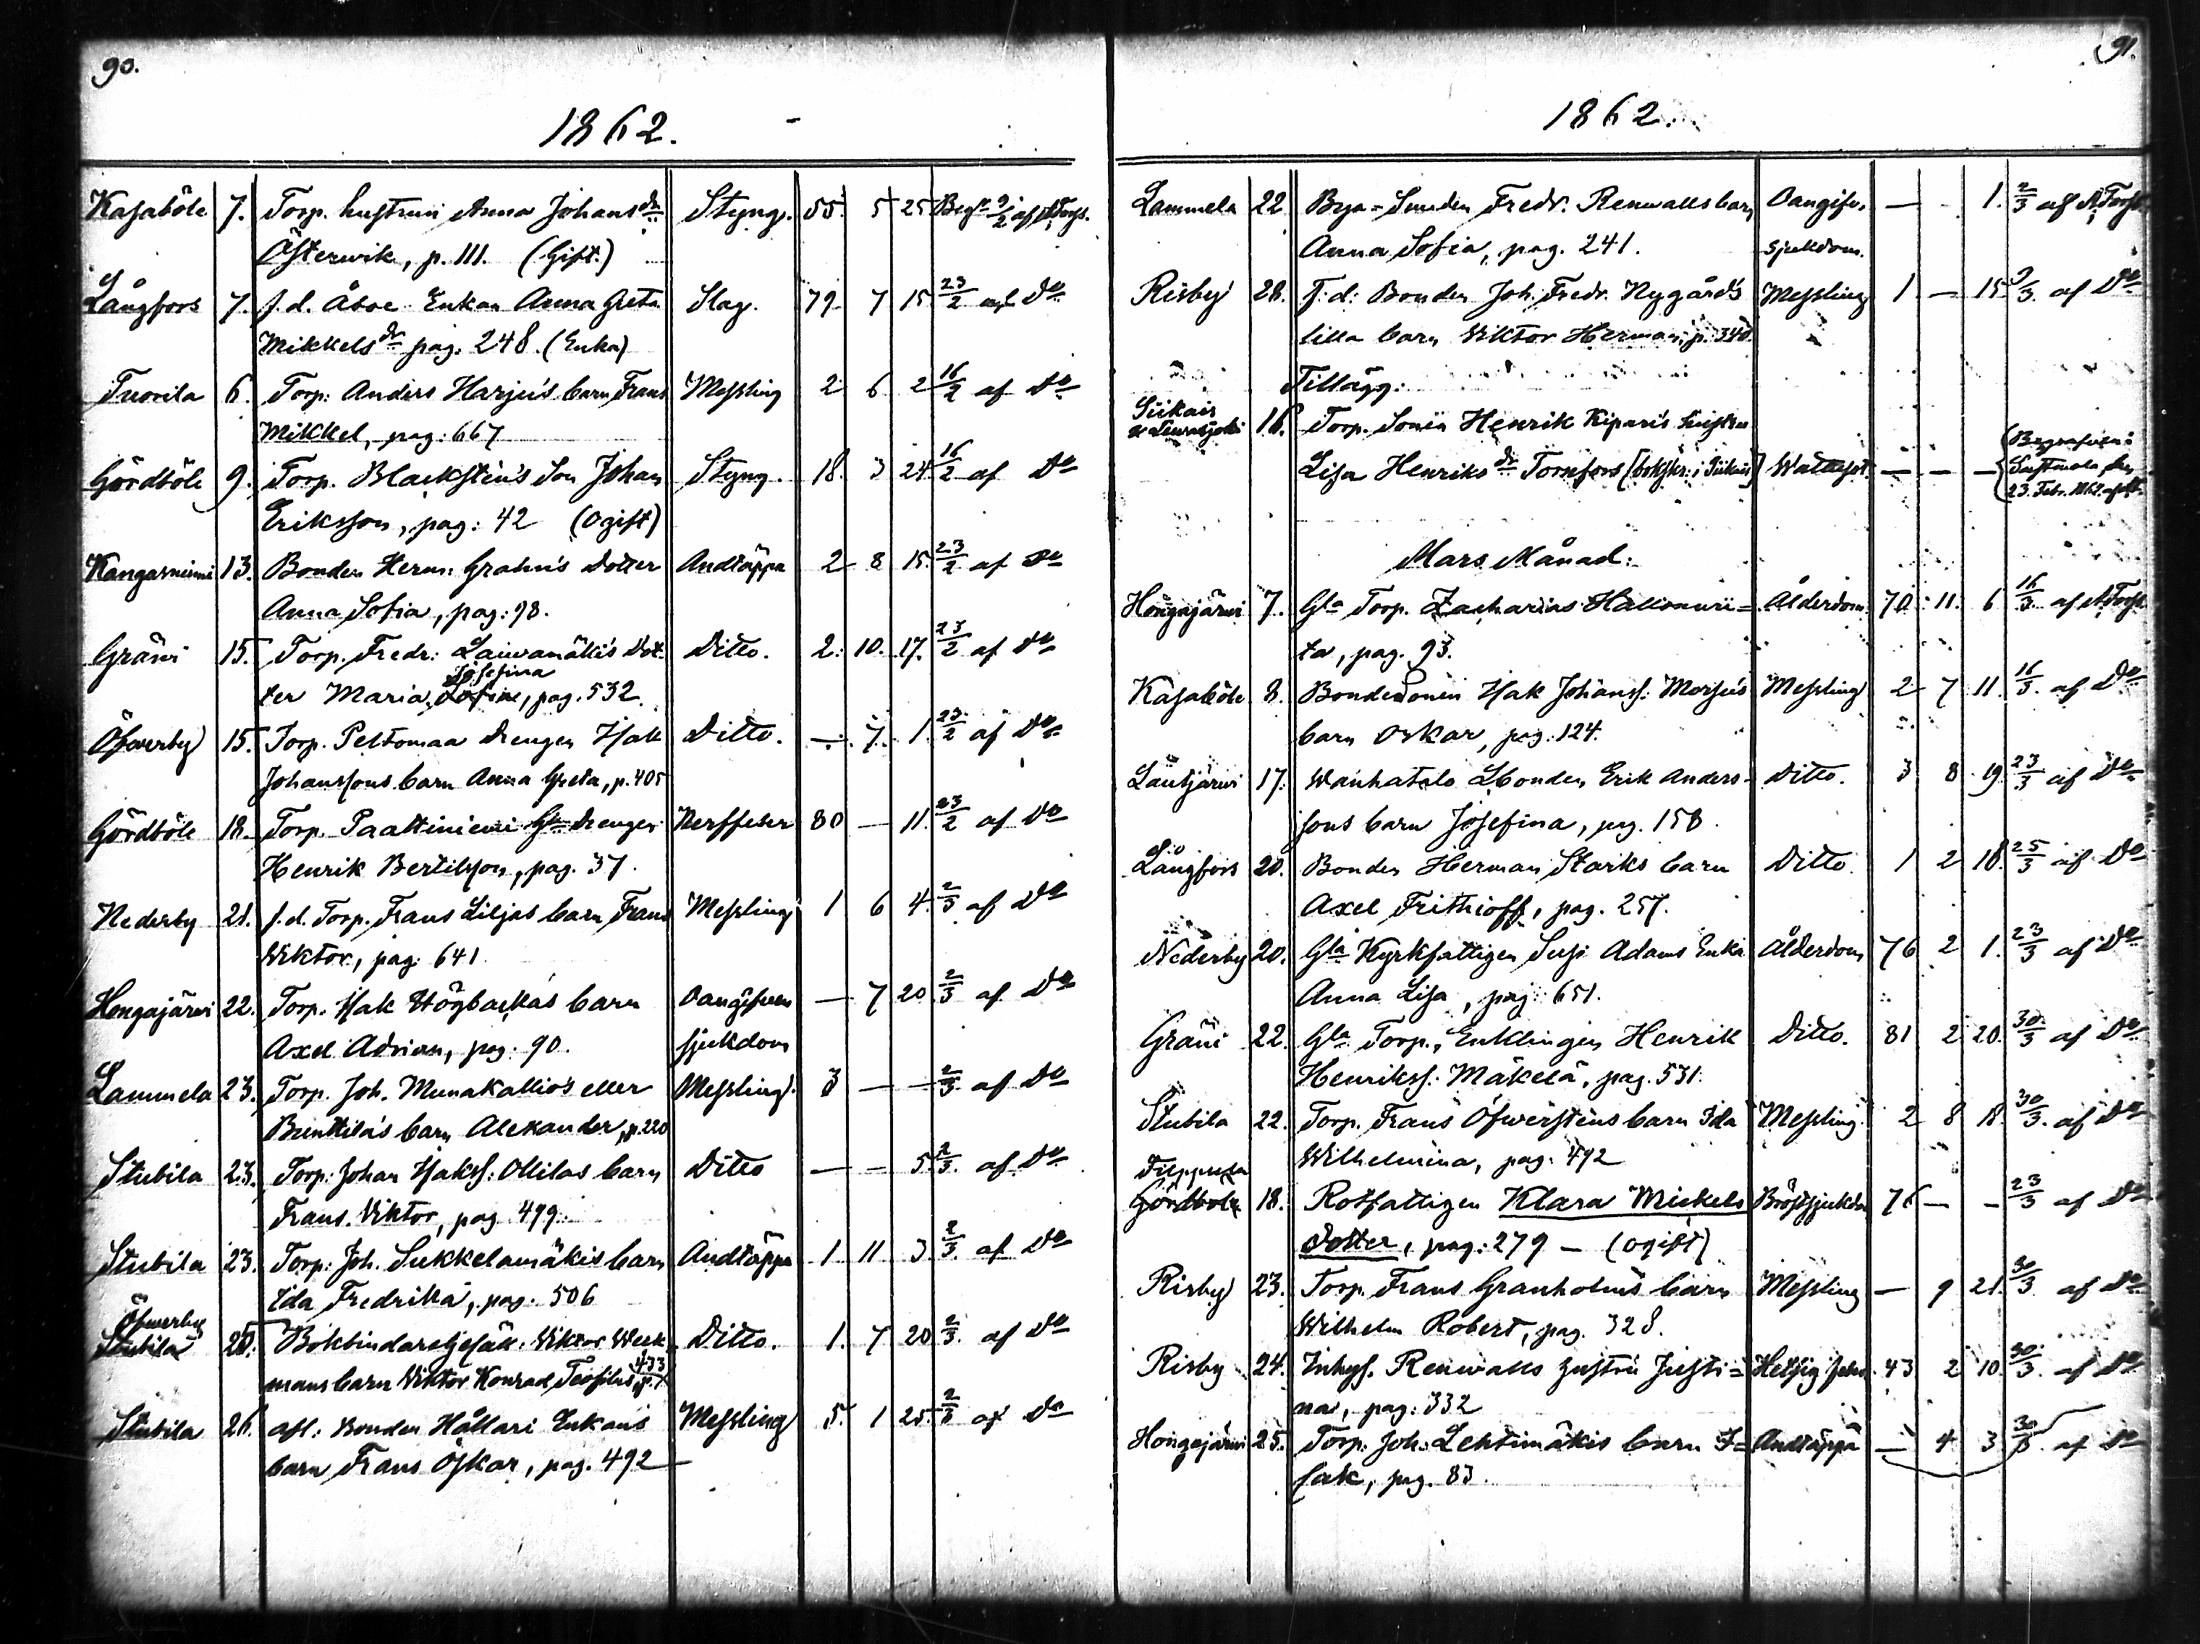 90.
1862.
Kasaböle 7. Torp. hustrun Anna Johansdr Styng. 55. 5 25 Begr. 9/2 af A. Forss.
Österwik, p. 111. (Gift.)
Långfors 7. f.d. Åboe Enkan Anna Greta Slag. 79 7 15 23/2 af Do
Mikkelsdr pag. 248. (Enka)
Tuorila 6. Torp. Anders Harju's barn Frans Messling 2 6 2 16/2 af Do
Mikkel, pag: 667
Gördböle 9. Torp. Blacksten's Son Johan Styng. 18. 3 24 16/2 af Do
Eriksson, pag: 42 (Ogift)
Kangasniemi 13. Bonden Herm: Grahn's dotter Andtäppa 2 8 15. 23/2 af Do
Anna Sofia, pag: 98.
Gräsvi 15. Torp. Fredr: Laiwamäki's Dot- Ditto. 2. 10. 17. 23/2 af Do
Josefina
ter Maria Sofia, pag. 532.
Öfwerby 15. Torp. Peltomaa drengen Isak Ditto. — 7. 1. 23/2 af Do
Johanssons barn Anna Greta, p. 405
Gördböle 18. Torp. Paaltiniemi Gla drengen Nerffeber 80 — 11. 23/2 af Do
Henrik Bertilsson, pag. 37.
Nederby 21. f.d. Torp. Frans Liljas barn Frans Messling 1 6 4. 2/3 af Do
Wiktor, pag: 641
Hongajärvi 22. Torp. Isak Högbacka's barn Oangifven — 7 20. 2/3 af Do
Axel Adrian, pag: 90. sjukdom
Lammela 23. Torp. Joh. Munakallio's eller Messling. 3 — — 2/3 af Do
Bunttila's barn Alexander, p. 220
Stubila 23. Torp: Johan Isakss: Ollilas barn Ditto — — 5. 2/3. af Do
Frans Viktor, pag. 499.
Stubila 23. Torp: Joh. Sukkelamäkis barn Andtäppa 1 11 3. 2/3. af Do
Ida Fredrika, pag. 506
Öfwerby
Stubila 20. Bokbindaregesäll. Viktor Week- Ditto. 1. 7 20 2/3. af Do
mans barn Viktor Konrad Teofilus, p. 433
Stubila 26. afl: Bonden Hållari Enkans Messling 5. 1 25. 2/3 af Do
barn Frans Oskar, pag. 492
91.
1862.
Lammela 22 Bya-Smeden Fredr. Renwalls barn Oangifv. — - 1. 2/3 af A. Forss.
Anna Sofia, pag. 241. sjukdom.
Risby 28. F.d: Bonden Joh. Fredr. Nygård's Messling 1 — 15 9/3. af Do
lilla barn Viktor Herman, p. 340.
Tillägg:
Siikais
16. Torp. Sonen Henrik Kipari's hustru
Lisa Henriksdr Tornfors Wattusot — — —
23. Febr. 1862
Mars Månad:
Hongajärvi 7. Gla Torp. Zacharias Hallonwii= Ålderdom 70. 11. 6 16/3. af A. Forss.
ta, pag. 93.
Kasaböle 8. Bondesonen Isak Johanss: Norju's Messling 2 7 11. 16/3. af Do
barn Oskar, pag. 124.
Lautjärvi 17. Wanhatalo Bonden Erik Anders- Ditto. 3 8 19 23/3 af Do
sons barn Josefina, pag. 158.
Långfors 20. Bonden Herman Starks barn Ditto. 1 2 18. 25/3 af Do
Axel Frithioff, pag. 257.
Nederby 20. Gla Kyrkfattigen Susi Adams Enka Ålderdom 76 2 1. 23/3 af Do
Anna Lisa, pag: 651.
Gräsvi 22. Gla Torp. Enklingen Henrik Ditto. 81 2 20. 30/3 af Do
Henrikss: Mäkelä, pag. 531.
Stubila 22. Torp. Frans Öfwerstens barn Ida Messling. 2 8 18. 30/3. af Do
Wilhelmina, pag: 492
Filppula
Gördböle 18. Rotfattigen Klara Mickels Bröstsjukdom 76 — — 23/3 af Do
dotter, pag: 279 — (ogift)
Risby 23. Torp. Frans Granholms barn Messling — 9 21. 30/3 af Do
Wilhelm Robert, pag. 328.
Risby 24. Inhys. Renwalls hustru Justi= Hetsig feber. 43 2 10 30/3. af Do
na, pag: 332
Hongajärvi 25. Torp. Joh: Lehtimäkis barn I= Andtäppa — 4 3 30/3. af Do
sak, pag. 83.